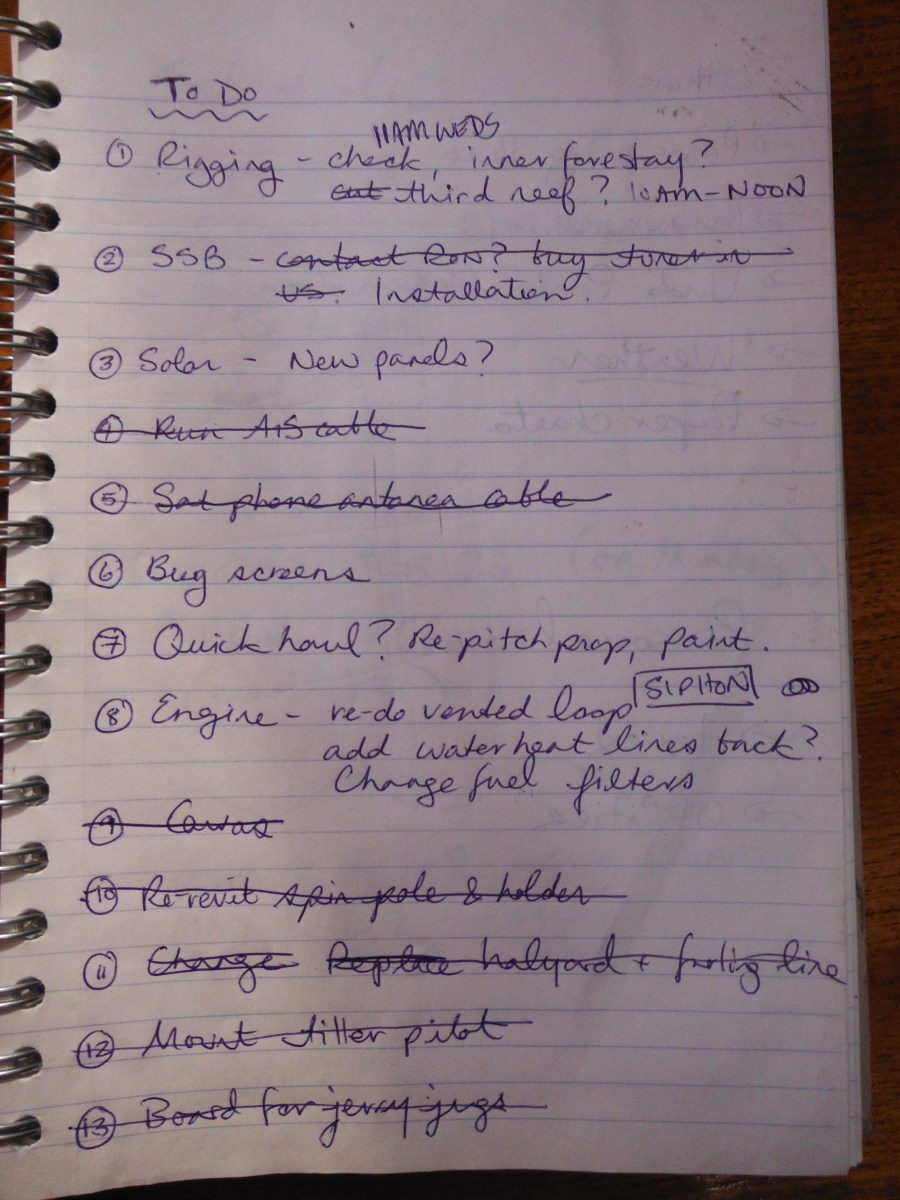 To Do
11AM WEDS
① Rigging - check, inner forestay?
cut third reef? 10AM-NOON
② SSB - contact Ron? buy tuner in
US. Installation.
③ Solar - New panels?
④ Run AIS cable
⑤ Sat phone antenea cable
⑥ Bug screens
⑦ Quick haul? Re-pitch prop, paint.
⑧ Engine - re-do vented loop SIPHON
add water heat lines back?
Change fuel filters
⑨ Canvas
⑩ Re-revit spin pole & holder
⑪ Change Replace halyard + furling line
⑫ Mount tiller pilot
⑬ Board for jerry jugs